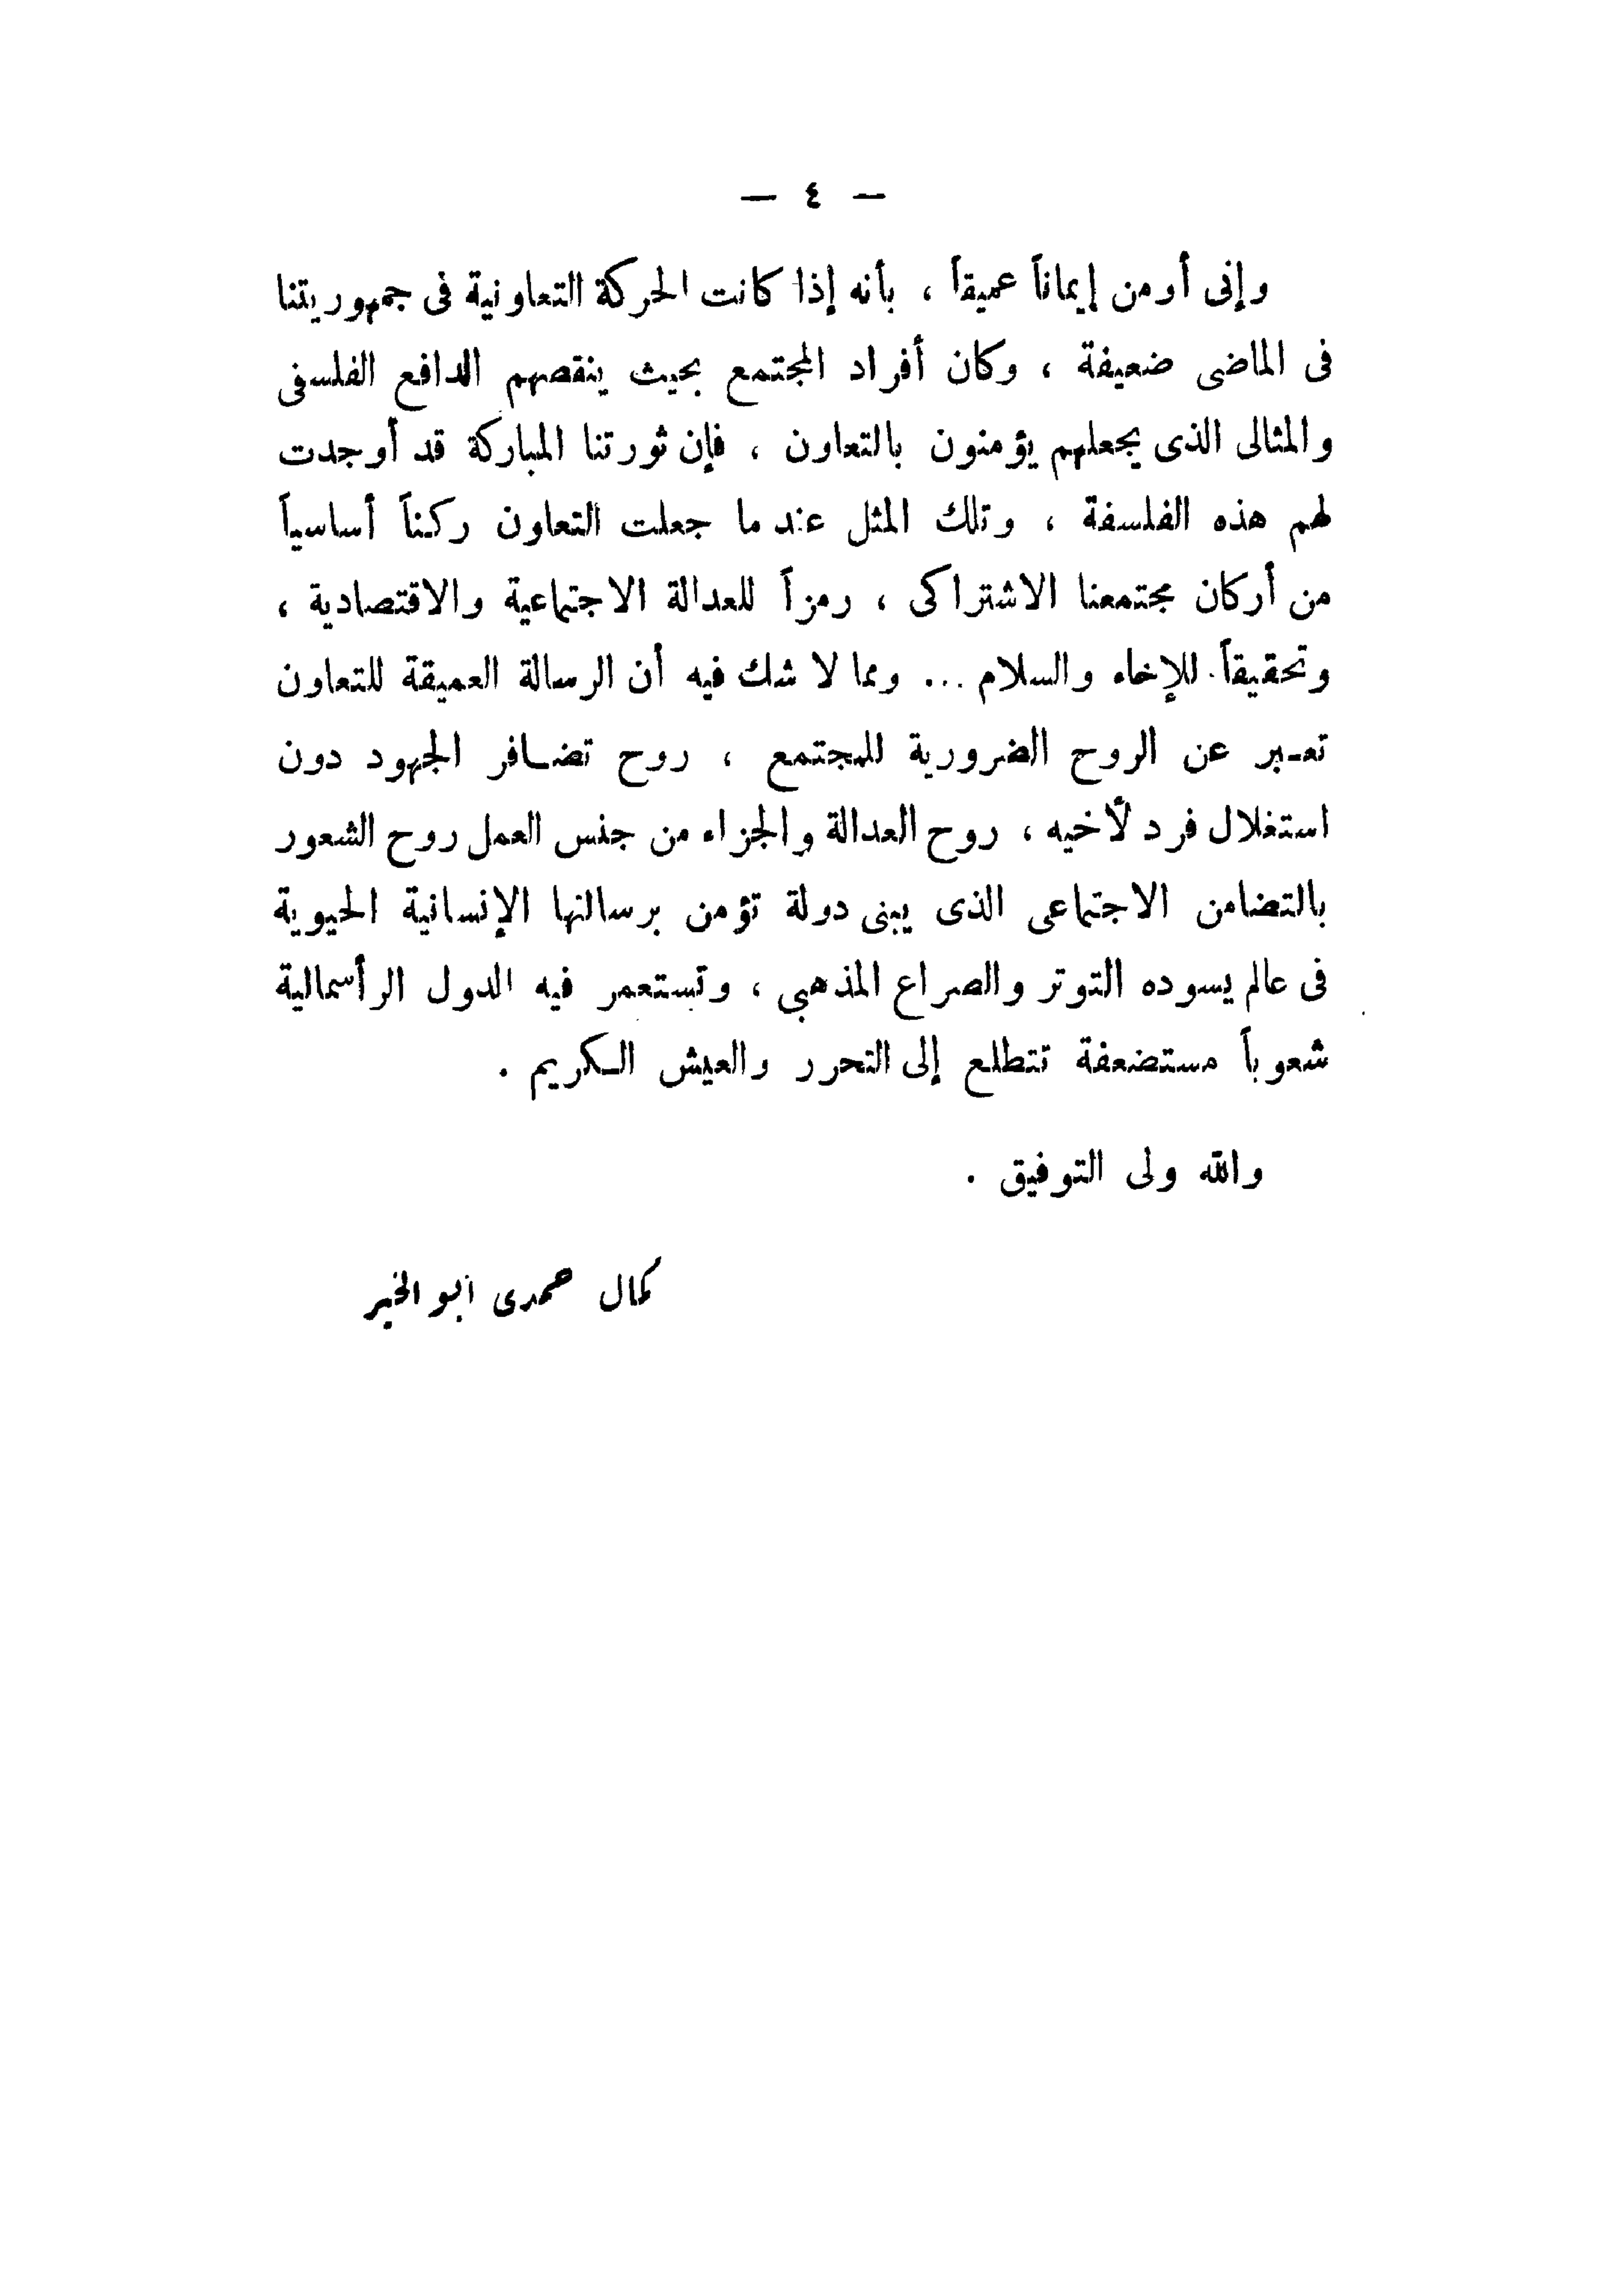 — ٤ —
وإنى أومن إيماناً عميقاً ، بأنه إذا كانت الحركة التعاونية فى جمهوريتنا
فى الماضى ضعيفة ، وكان أفراد المجتمع بحيث ينقصهم الدافع الفلسفى
والمثالى الذى يجعلهم يؤمنون بالتعاون ، فإن ثورتنا المباركة قد أوجدت
لهم هذه الفلسفة ، وتلك المثل عند ما جعلت التعاون ركناً أساسياً
من أركان مجتمعنا الاشتراكى ، رمزاً للعدالة الاجتماعية والاقتصادية ،
وتحقيقاً للإخاء والسلام ... ومما لا شك فيه أن الرسالة العميقة للتعاون
تعـبر عن الروح الضرورية للمجتمع ، روح تضـافر الجهود دون
استغلال فرد لأخيه ، روح العدالة والجزاء من جنس العمل روح الشعور
بالتضامن الاجتماعى الذى يبنى دولة تؤمن برسالتها الإنسانية الحيوية
فى عالم يسوده التوتر والصراع المذهبى ، وتستعمر فيه الدول الرأسمالية
شعوباً مستضعفة تتطلع إلى التحرر والعيش الـكريم .
والله ولى التوفيق .
كمال حمدى ابو الخير